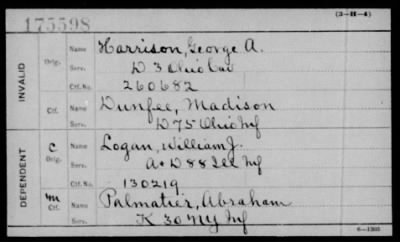 175598
(3-H-4)
INVALID
Orig. Name Harrison, George A.
Serv. D 3 Ohio Cav
Ctf. No. 260682
Ctf. Name Dunfee, Madison
Serv. D 75 Ohio Inf
DEPENDENT
C Orig. Name Logan, William J.
Serv. A + D 88 Ill Inf
Ctf. No. 130219
m Ctf. Name Palmatier, Abraham
Serv. K 30 NY Inf